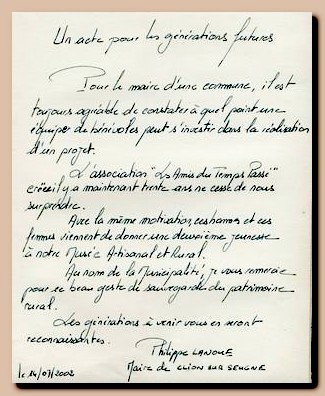 Un acte pour les générations futures
Pour le maire d'une commune, il est
toujours agréable de constater à quel point une
équipe de bénévoles peut s'investir dans la réalisation
d'un projet.
L'association "Les Amis du Temps Passé"
créée il y a maintenant trente ans ne cesse de nous
surprendre.
Avec la même motivation, ces hommes et ces
femmes viennent de donner une deuxième jeunesse
à notre Musée Artisanal et Rural.
Au nom de la Municipalité, je vous remercie
pour ce beau geste de sauvegarde du patrimoine
rural.
Les générations à venir vous en seront
reconnaissantes.
Philippe LANOUE
Maire de CLION SUR SEUGNE
le 24/07/2002